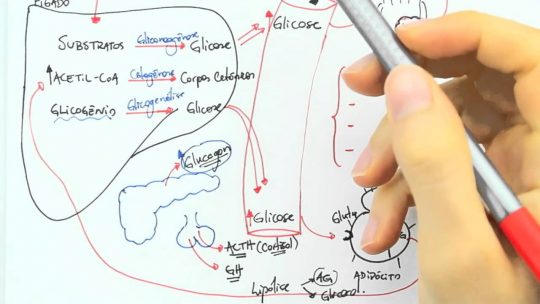 FÍGADO
SUBSTRATOS Gliconeogênese Glicose
↑ACETIL-CoA Cetogênese Corpos Cetônicos
GLICOGÊNIO Glicogenólise Glicose
↑Glicose
↑Glucagon
↑Glicose
ACTH (Cortisol)
GH
Lipólise
AG
Glicerol
Glut4
G
ADIPÓCITO